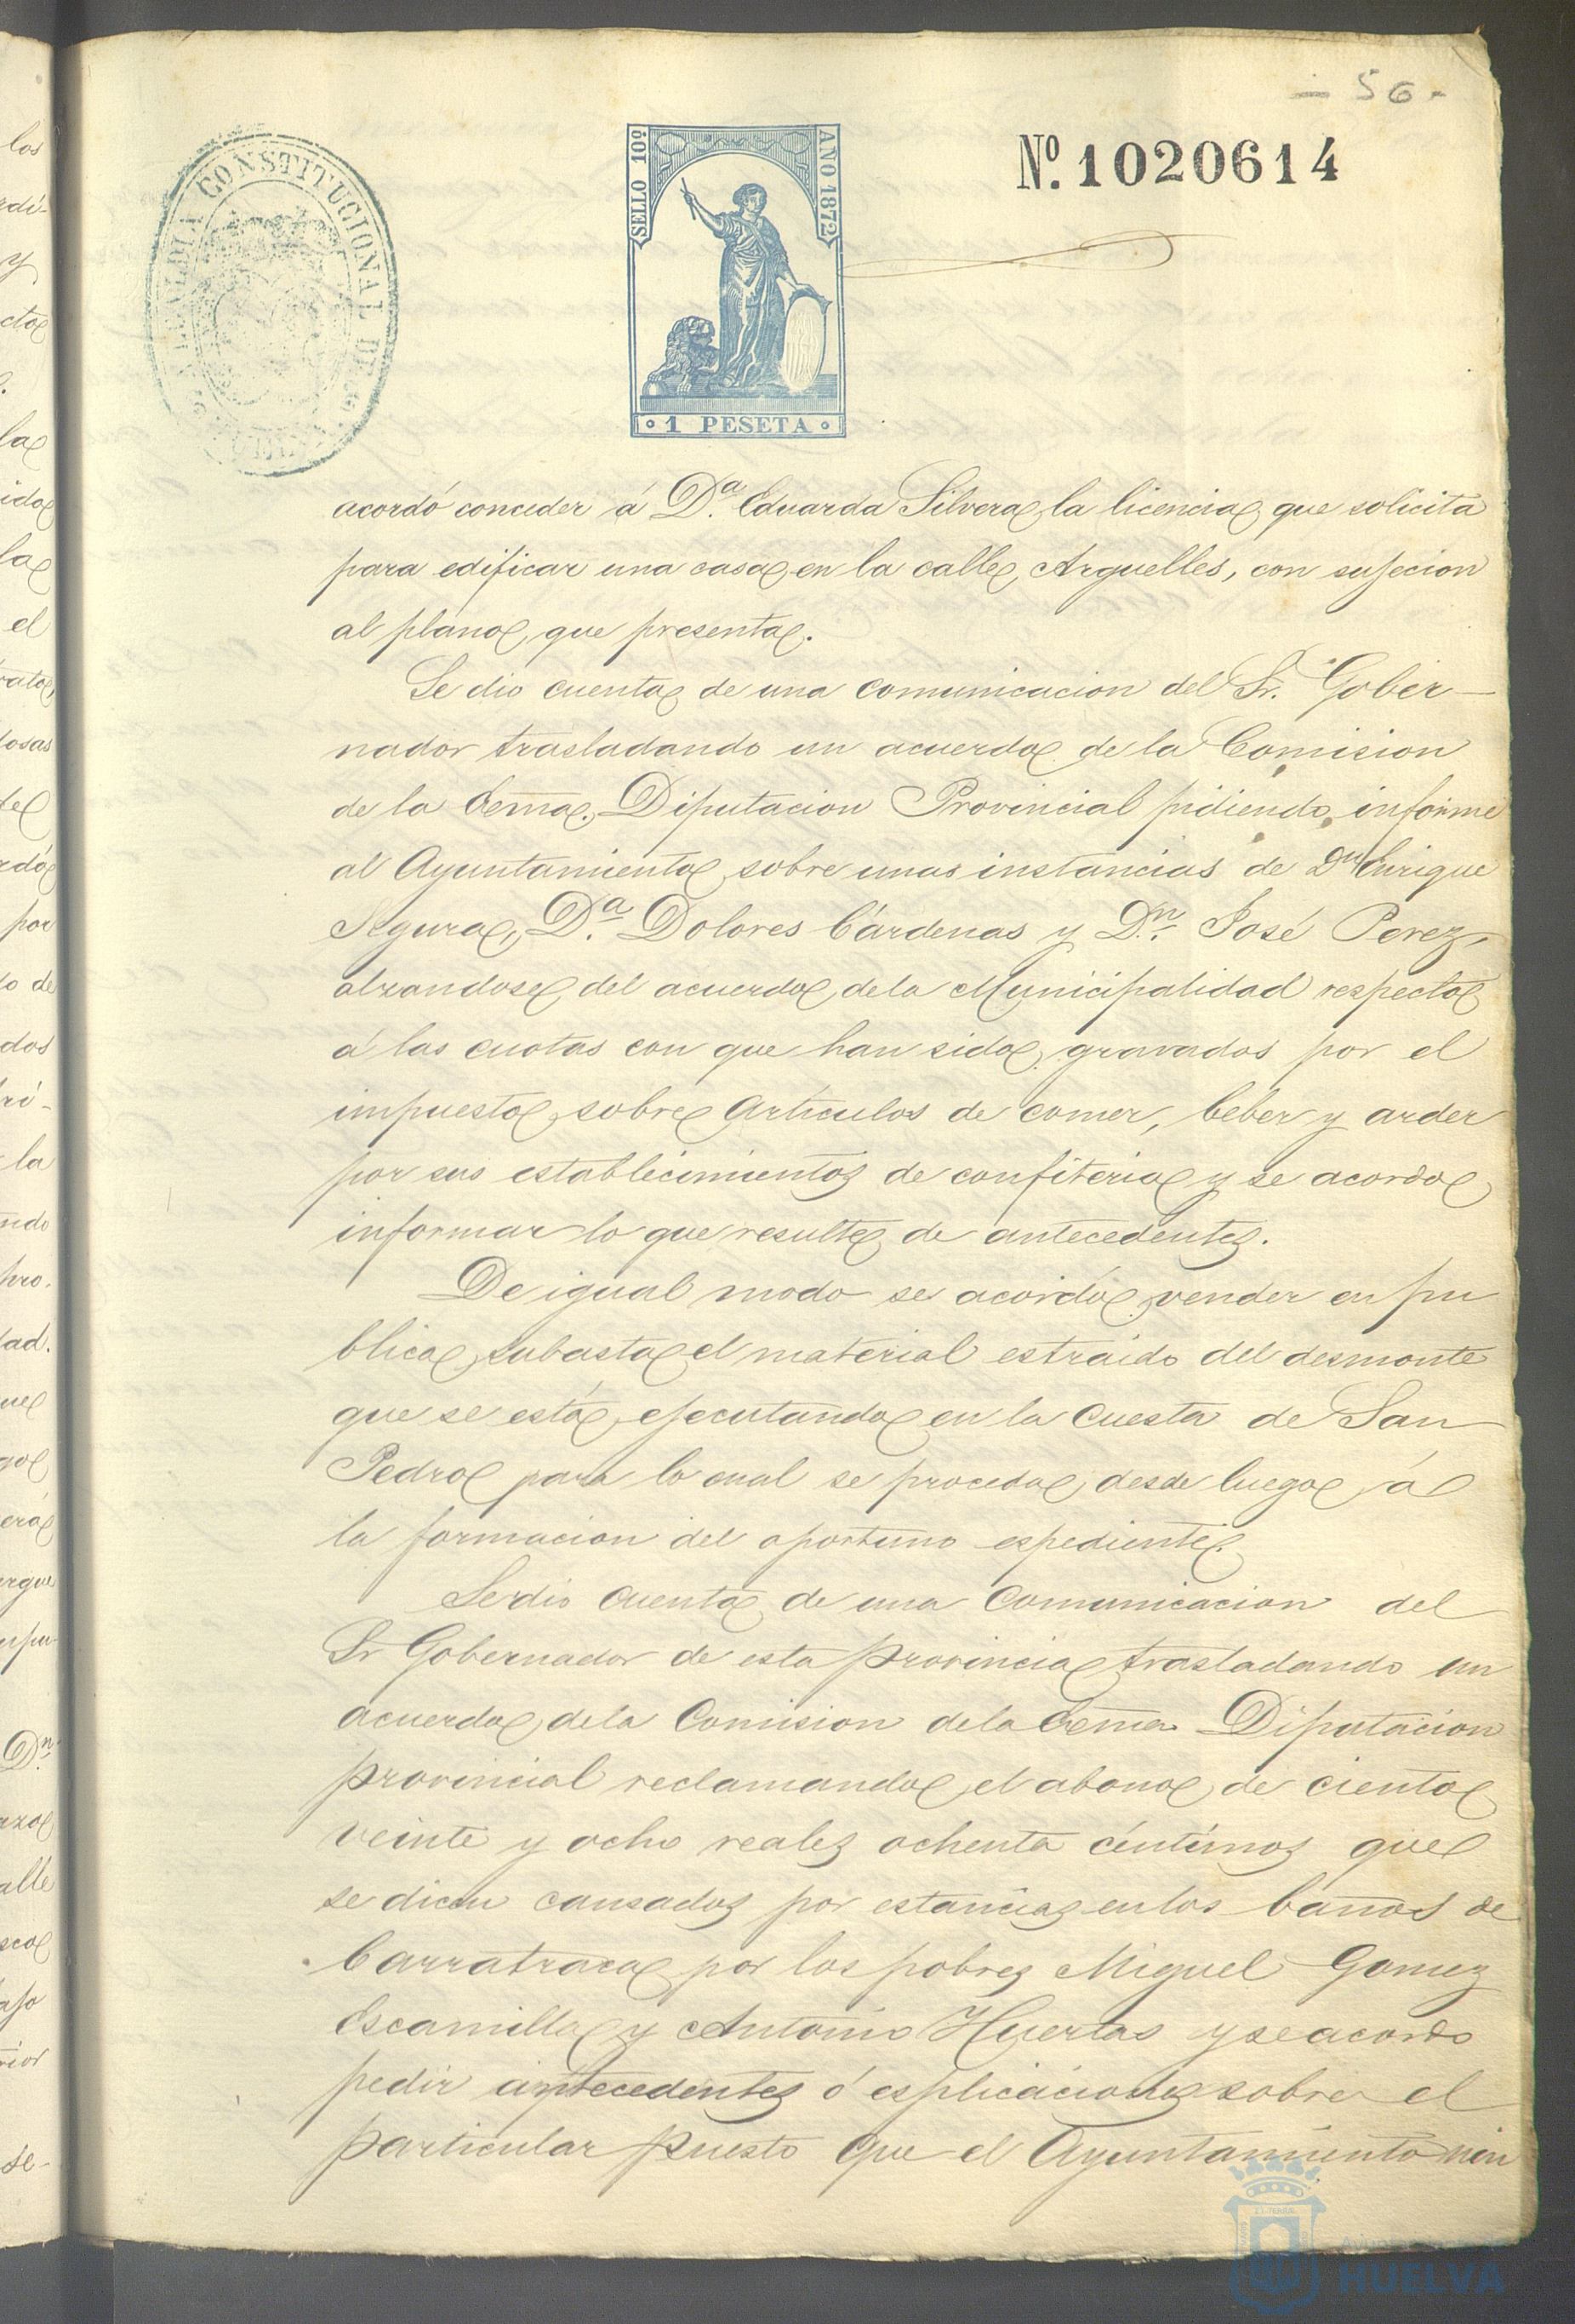 - 56 -
ALCALDIA CONSTITUCIONAL DE
SELLO 10º
AÑO 1872
Nº. 1020614
1 PESETA
acordó conceder á D.ª Eduarda Silvera la licencia que solicita
para edificar una casa en la calle Arguelles, con sujecion
al plano que presenta.
Se dio cuenta de una comunicacion del Sr. Gober-
nador trasladando un acuerdo de la Comision
de la Excma. Diputacion Provincial pidiendo informe
al Ayuntamiento sobre unas instancias de Dn Enrique
Segura, D.ª Dolores Cárdenas y D.n José Perez,
alzandose del acuerdo dela Municipalidad respecto
á las cuotas con que han sido gravados por el
impuesto sobre artículos de comer, beber y arder
por sus establecimientos de confiteria y se acordo
informar lo que resulte de antecedentes.
De igual modo se acordó vender en pu
blica subasta el material estraido del desmonte
que se está ejecutando en la Cuesta de San
Pedro para lo cual se proceda desde luego á
la formacion del oportuno espediente.
Se dio cuenta de una Comunicacion del
Sr Gobernador de esta provincia trasladando un
acuerdo dela Comision dela Excma Diputacion
provincial reclamando el abono de ciento
veinte y ocho reales ochenta céntimos que
se dicen causados por estancias en los baños de
Carratraca por los pobres Miguel Gomez
Escamilla y Antonio Huertas y se acordo
pedir antecedentes ó esplicaciones sobre el
particular puesto que el Ayuntamiento nin
HUELVA
los
edi-
y
cto
la
ido
la
el
rato,
losas
te
rdó
por
lo de
dos
ri-
la
ndo
pro.
dad.
ue
go
erá
rgue
Dn
rzo
alle
sco
ajo
rior
se-